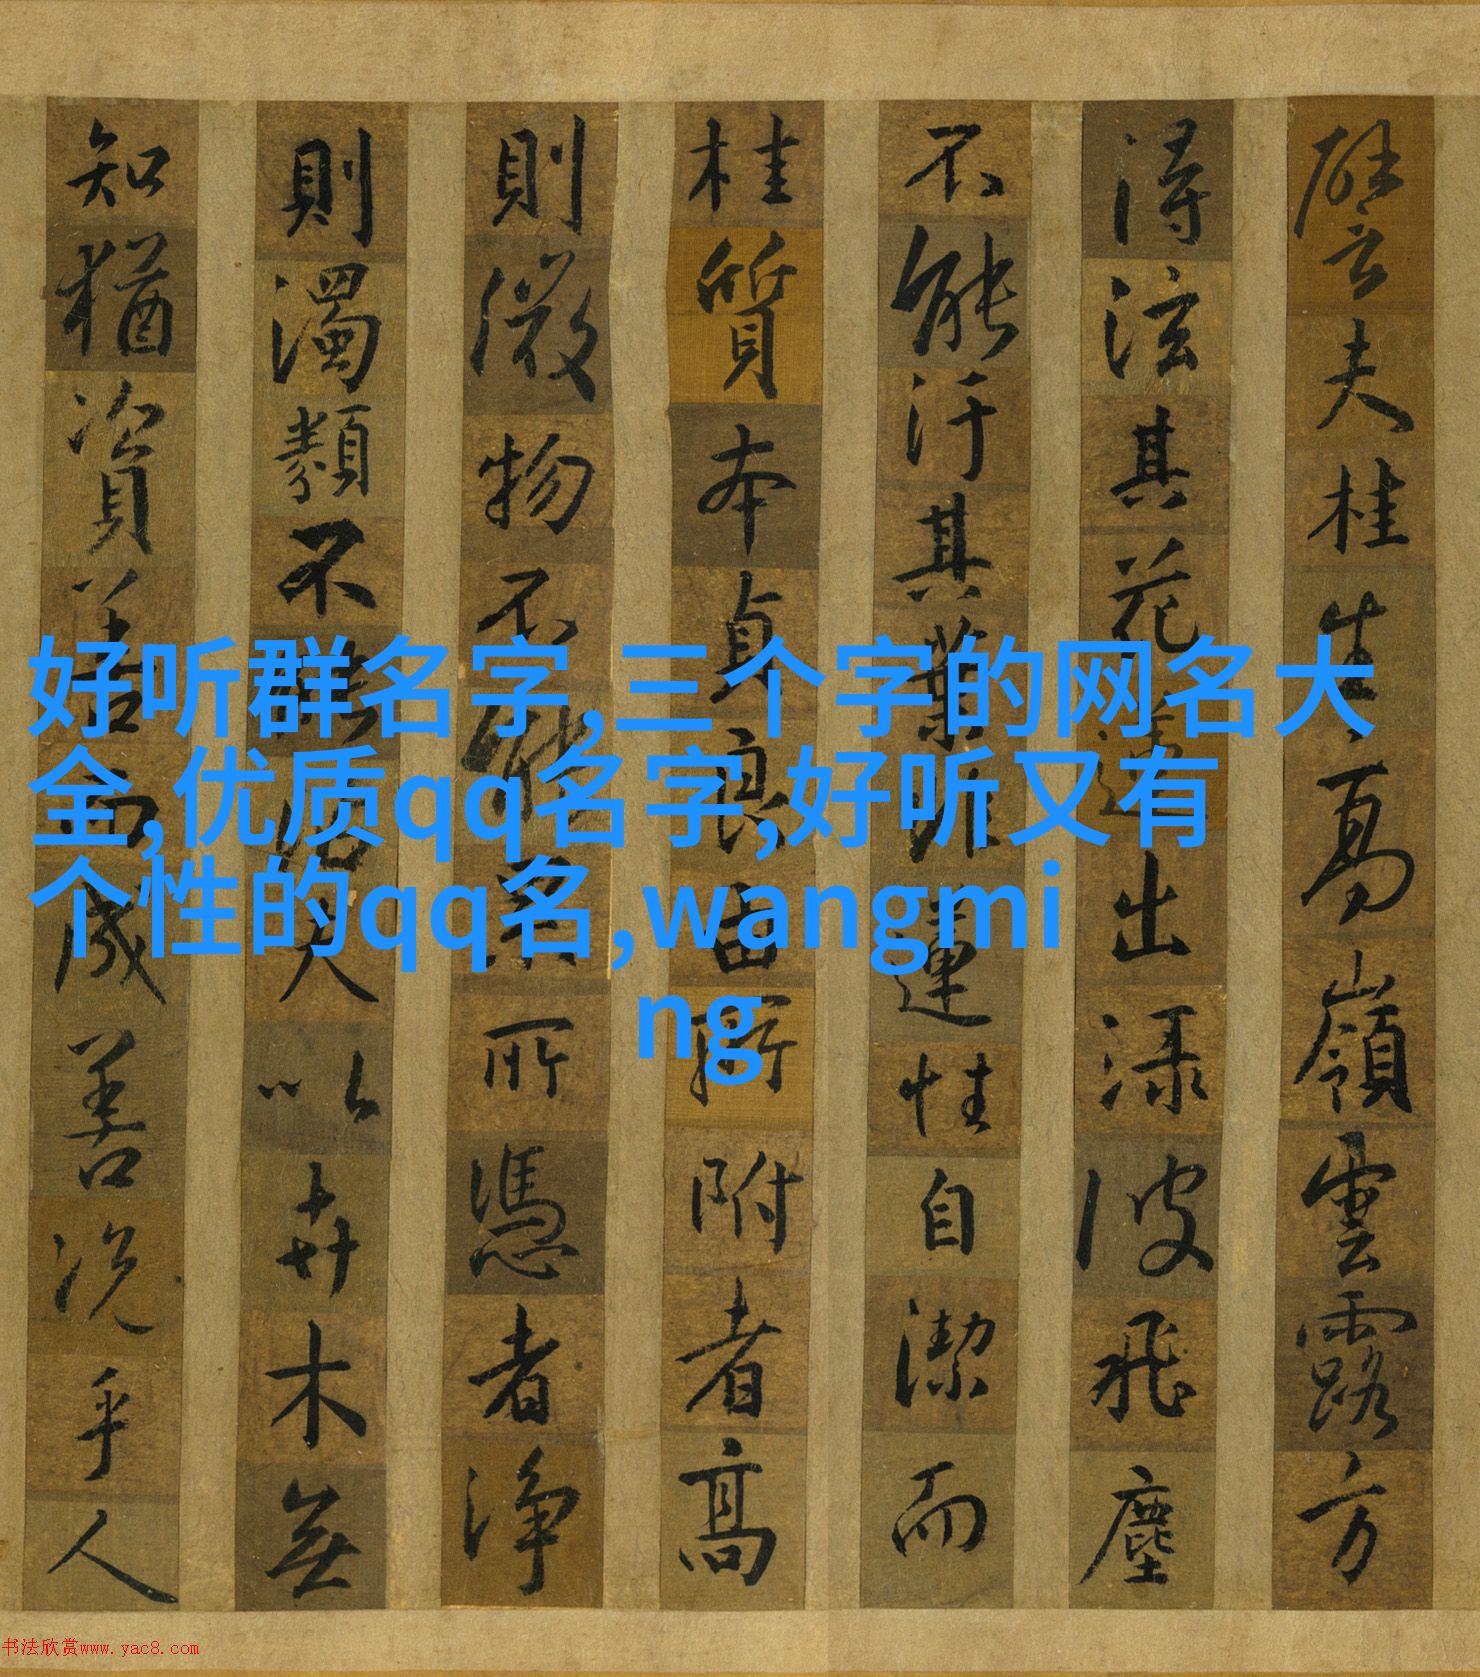 譬夫桂生高嶺雲露方
得泫其花蓮出淥波飛塵
不能汙其葉非蓮性自潔而
桂質本貞良由所附者高
則微物不能累所憑者淨
則濁類不能沾夫以卉木無
知猶資善而成善況乎人
好听群名字,三个字的网名大
全,优质qq名字,好听又有
个性的qq名,wangmi
ng
书法欣赏www.yac8.com